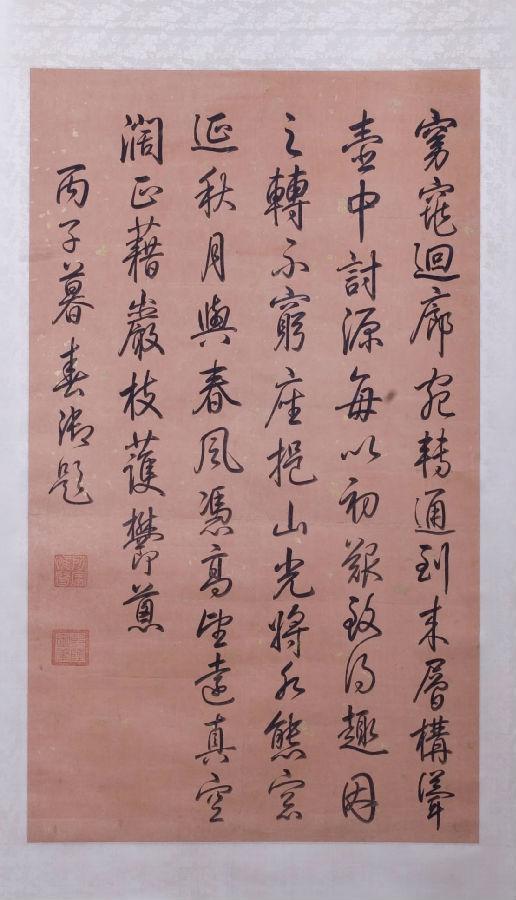 窈窕迴廊宛轉通到来層構聳
壺中討源每以初艱致得趣因
之轉不窮座挹山光將水態窓
延秋月與春風憑高望遠真空
濶正藉巖枝護欝蔥
丙子暮春御題